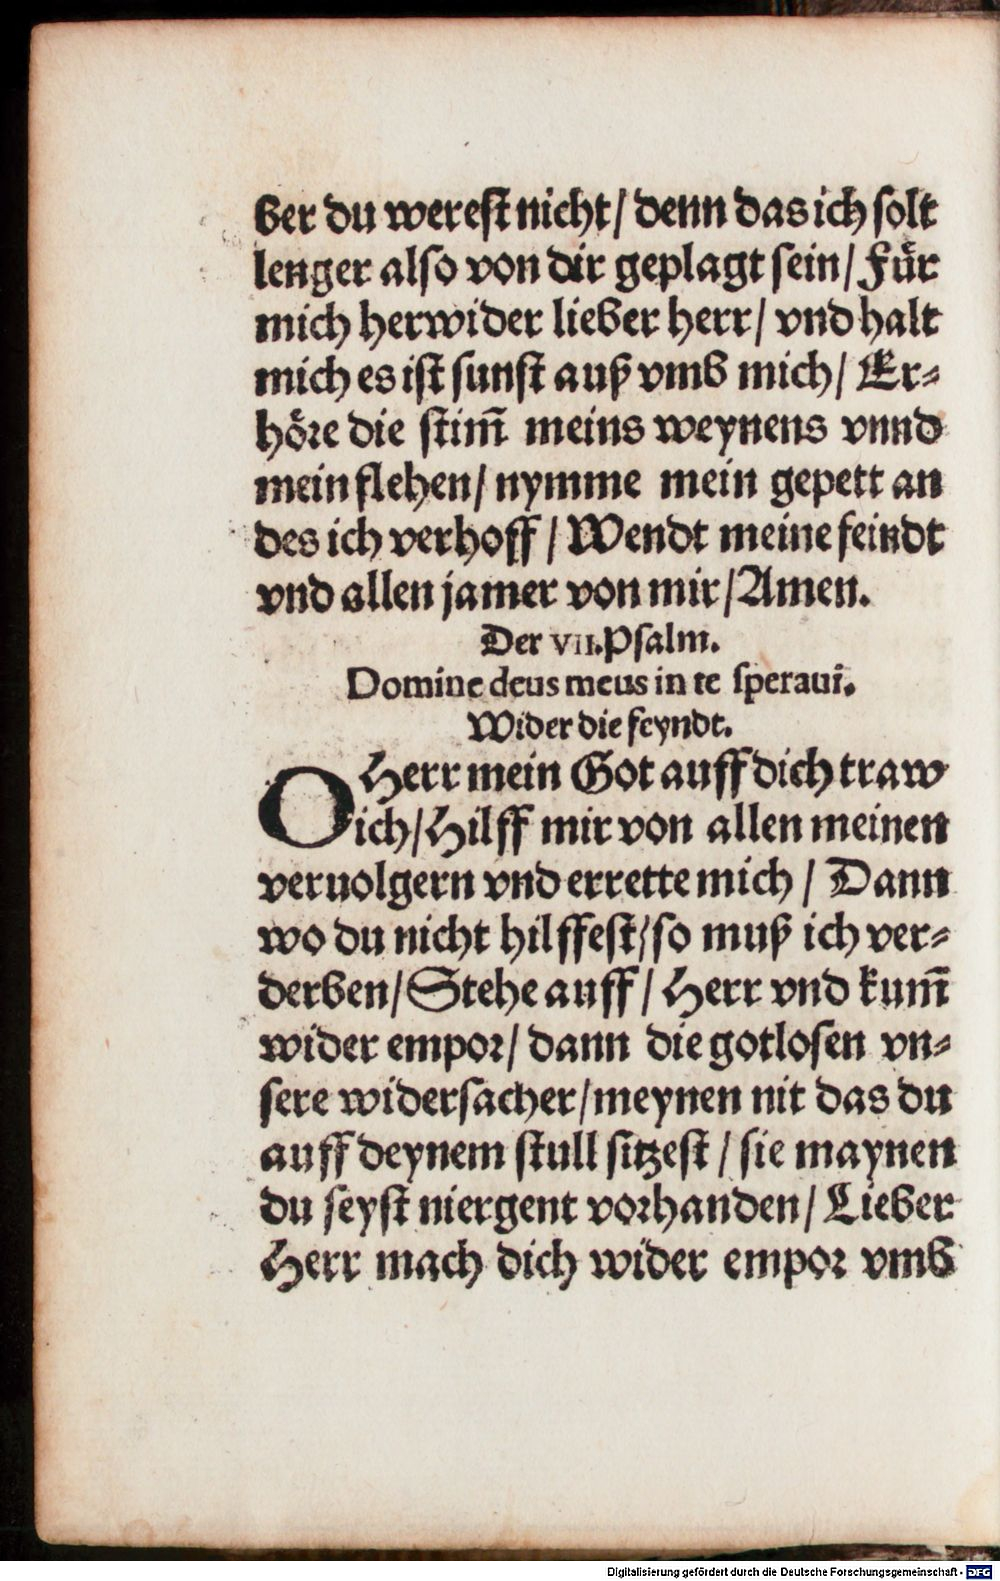 ber du werest nicht/ denn das ich solt
lenger also von dir geplagt sein/ Für
mich herwider lieber herr/ vnd halt
mich es ist sunst auß vmb mich/ Er⸗
höre die stim̃ meins weynens vnnd
mein flehen/ nymme mein gepett an
des ich verhoff/ Wendt meine feindt
vnd allen jamer von mir/ Amen.
Der VII. Psalm.
Domine deus meus in te speraui.
Wider die feyndt.
O Herr mein Got auff dich traw
ich/ Hilff mir von allen meinen
veruolgern vnd errette mich/ Dann
wo du nicht hilffest/ so muß ich ver⸗
derben/ Stehe auff/ Herr vnd kum̃
wider empor/ dann die gotlosen vn⸗
sere widersacher/ meynen nit das du
auff deynem stull sitzest/ sie maynen
du seyst niergent vorhanden/ Lieber
Herr mach dich wider empor vmb
Digitalisierung gefördert durch die Deutsche Forschungsgemeinschaft - DFG